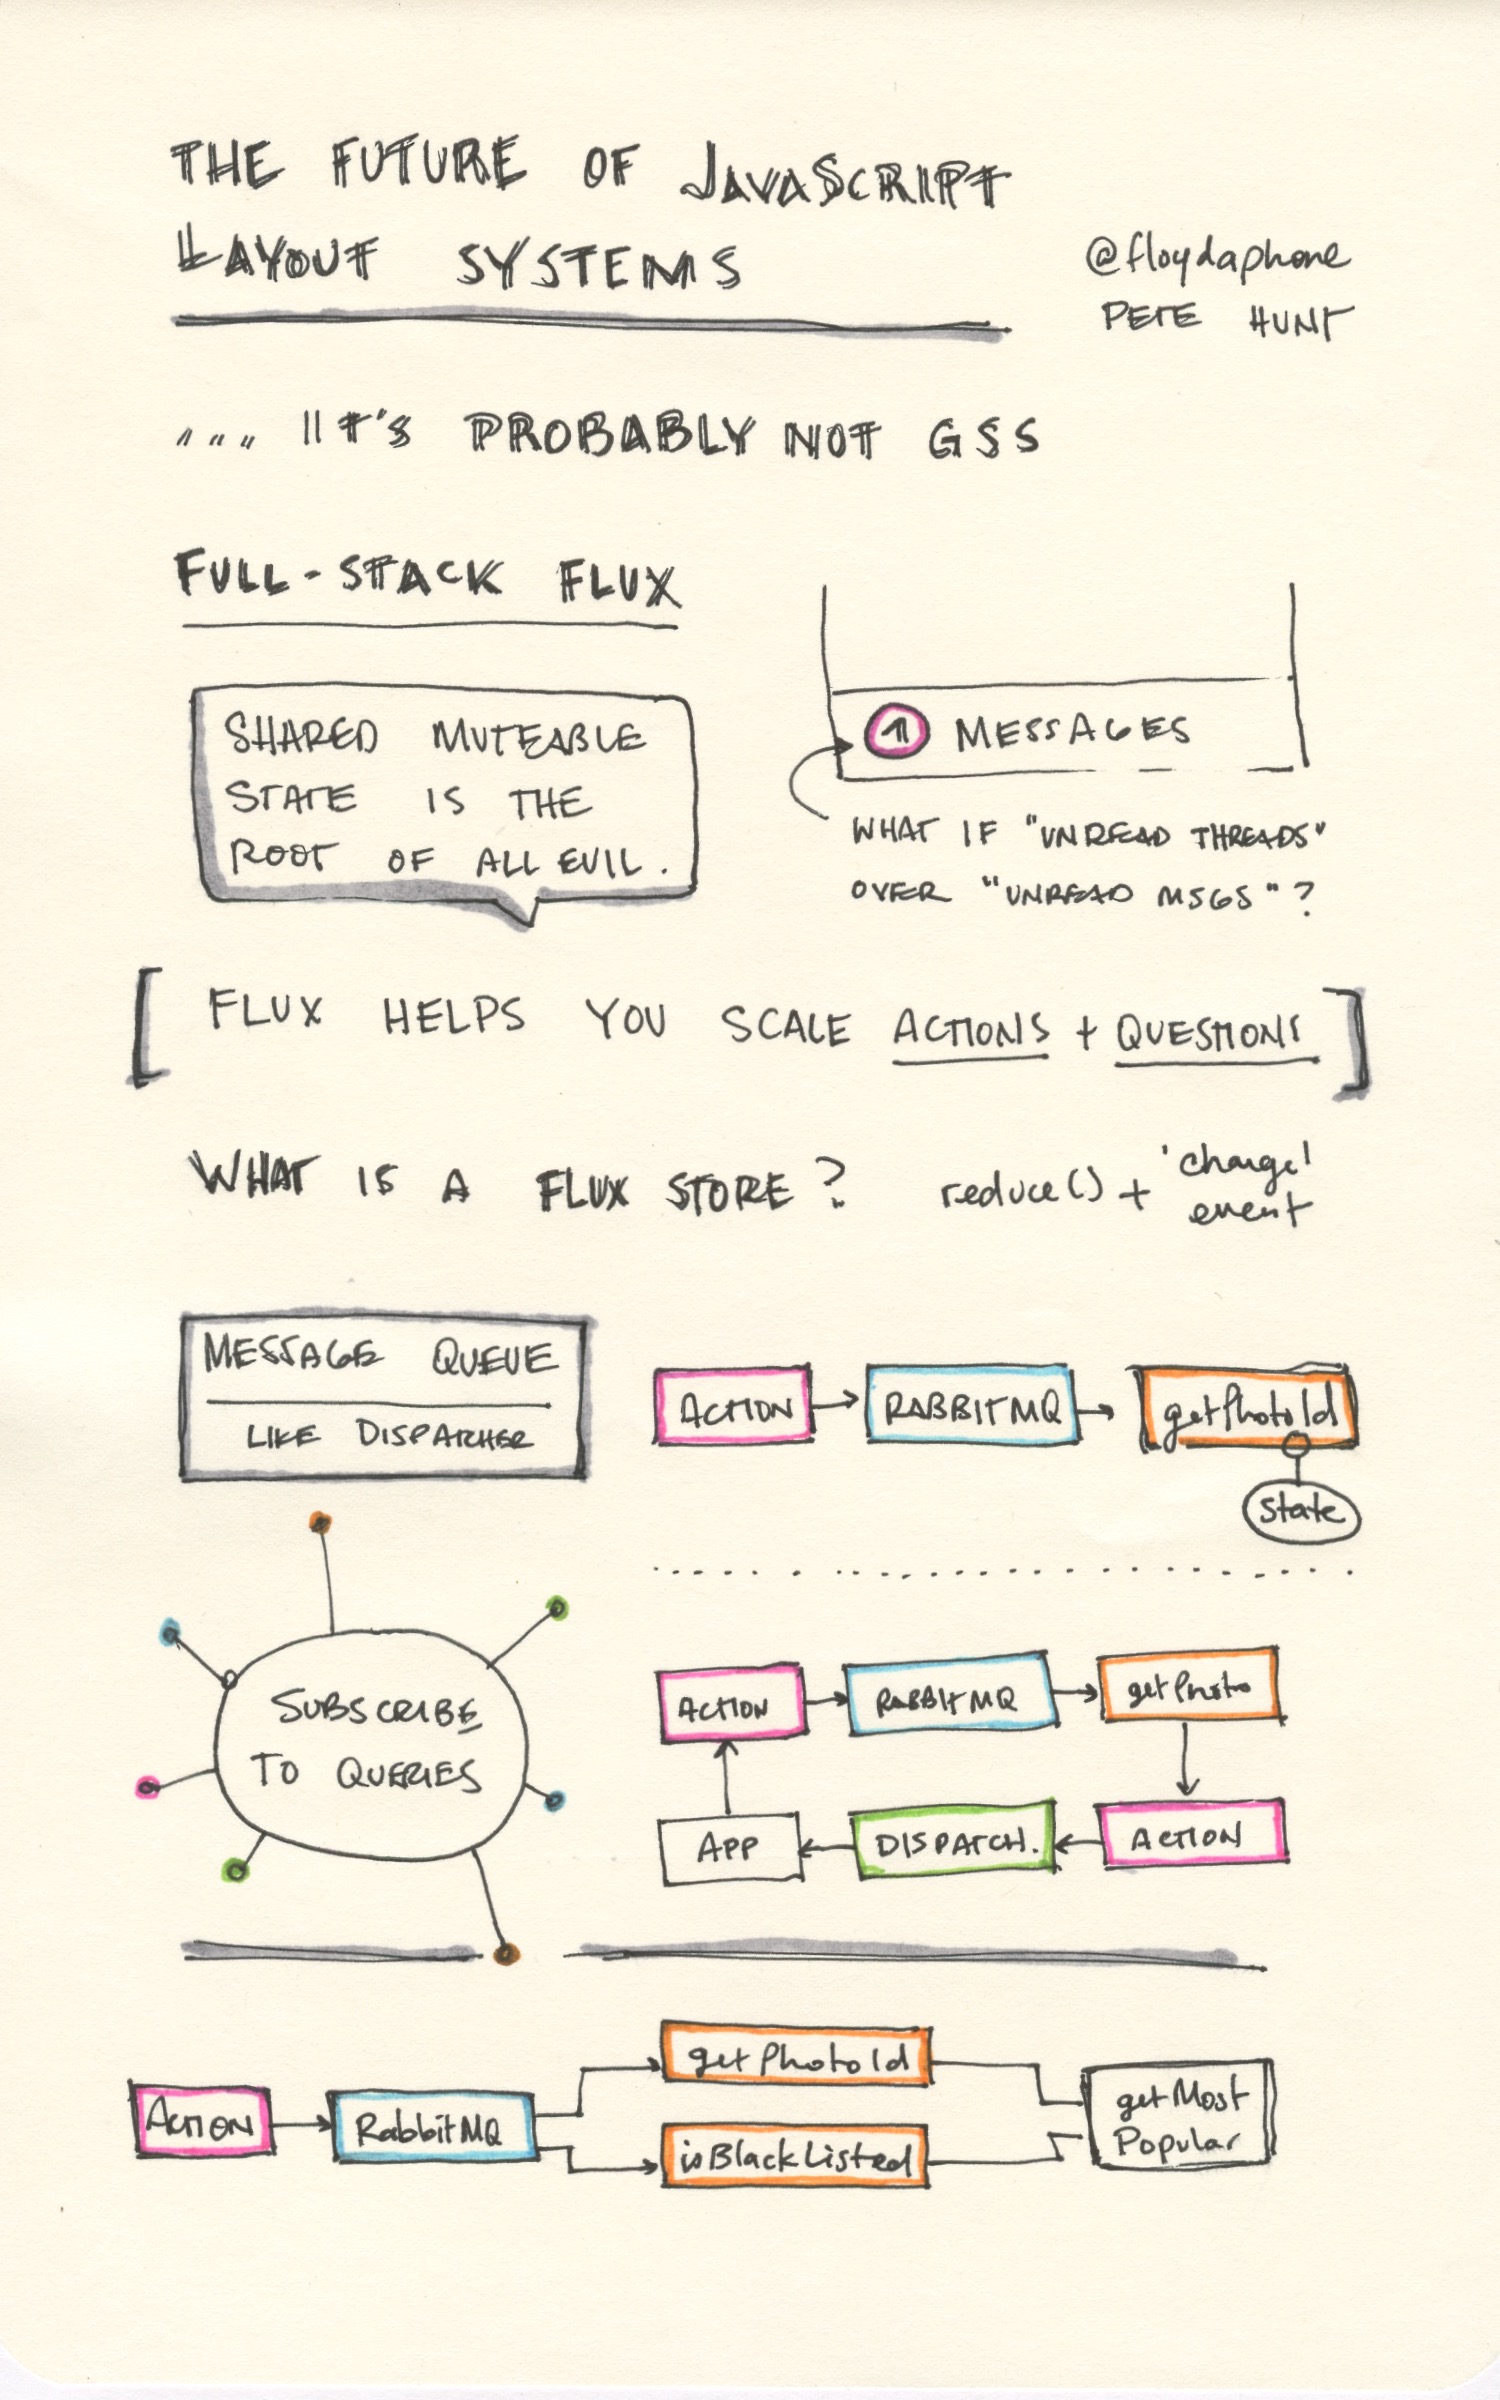 THE FUTURE OF JAVASCRIPT
LAYOUT SYSTEMS
@floydaphone
PETE HUNT
.... IT'S PROBABLY NOT GSS
FULL-STACK FLUX
SHARED MUTEABLE
STATE IS THE
ROOT OF ALL EVIL.
1 MESSAGES
WHAT IF "UNREAD THREADS"
OVER "UNREAD MSGS"?
[ FLUX HELPS YOU SCALE ACTIONS + QUESTIONS ]
WHAT IS A FLUX STORE?
reduce() + 'change'
event
MESSAGE QUEUE
LIKE DISPATCHER
ACTION
RABBITMQ
getPhotoId
state
SUBSCRIBE
TO QUERIES
ACTION
RABBITMQ
getPhoto
APP
DISPATCH.
ACTION
ACTION
RabbitMQ
getPhotoId
isBlackListed
getMost
Popular